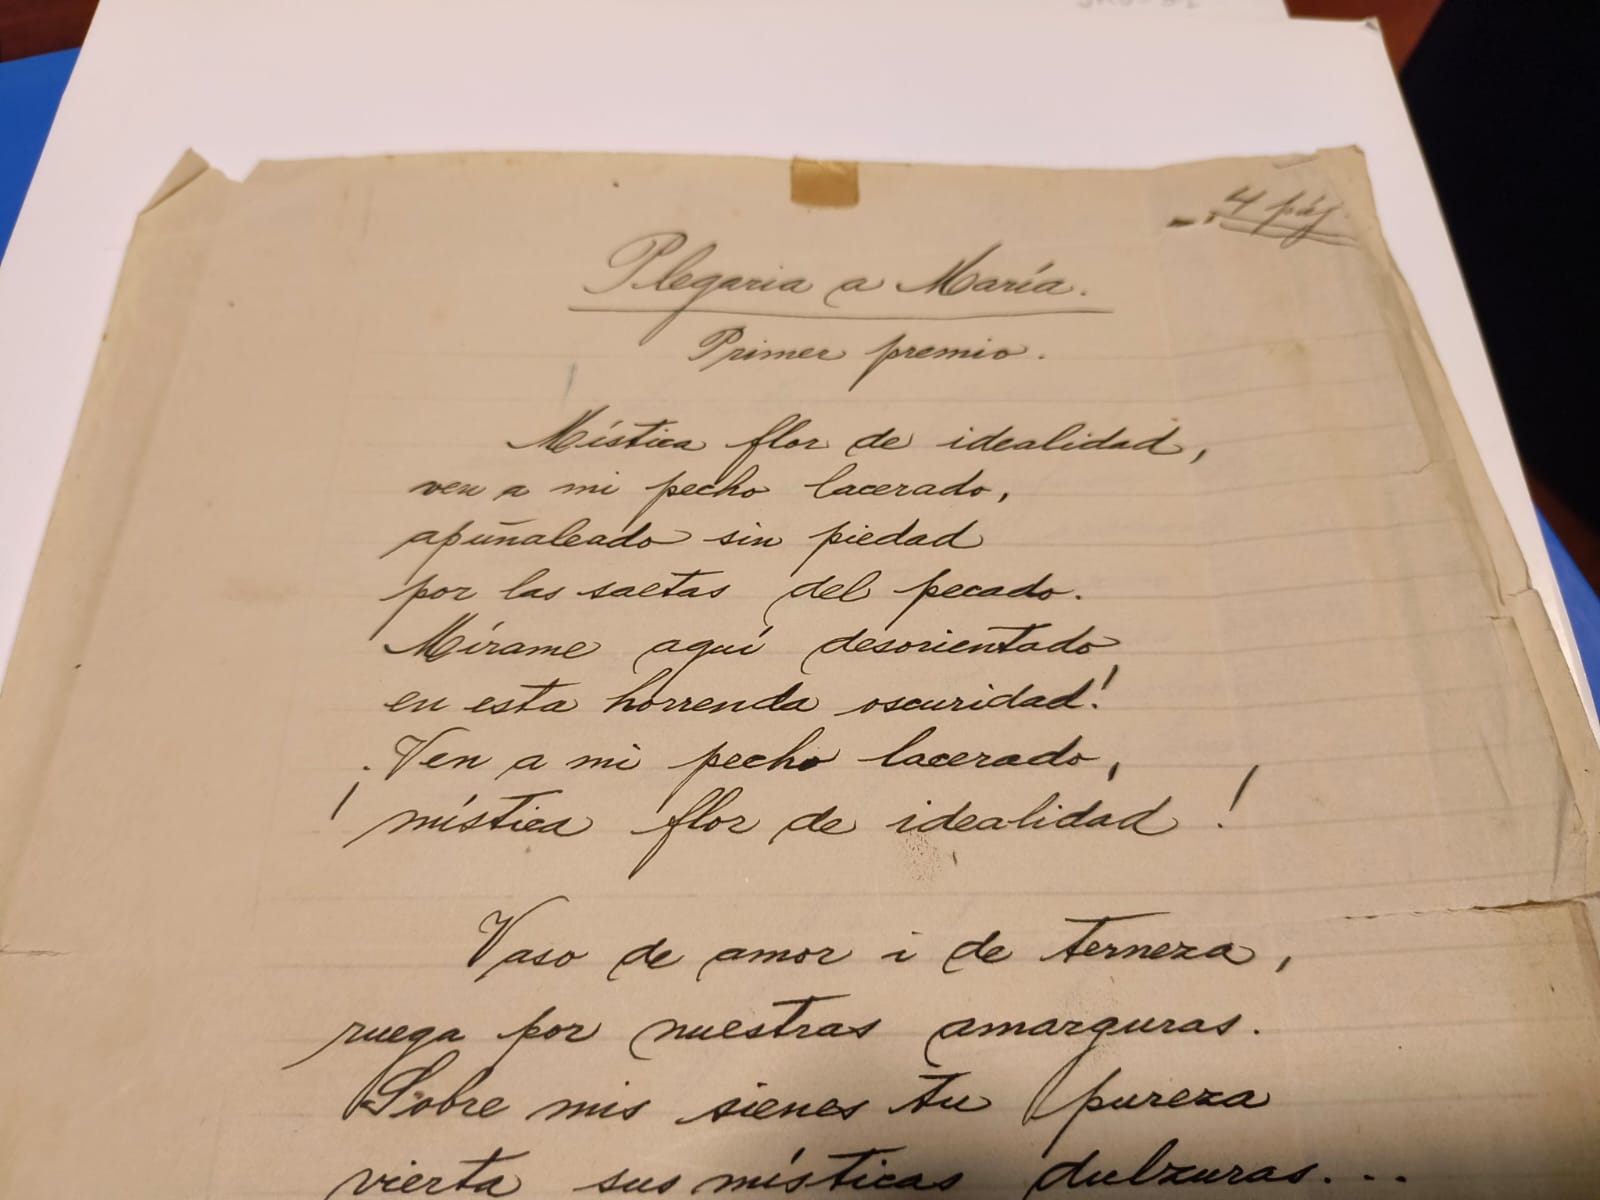 4 páj.
Plegaria a María.
Primer premio.
Mística flor de idealidad,
ven a mi pecho lacerado,
apuñaleado sin piedad
por las saetas del pecado.
Mírame aquí desorientado
en esta horrenda oscuridad!
Ven a mi pecho lacerado,
¡mística flor de idealidad!
Vaso de amor i de terneza,
ruega por nuestras amarguras.
Sobre mis sienes tu pureza
vierta sus místicas dulzuras...